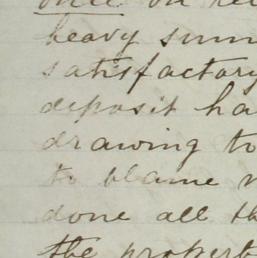 once on
heavy
satisfactory
deposit ha
drawing to
to blame
done all th
the propert